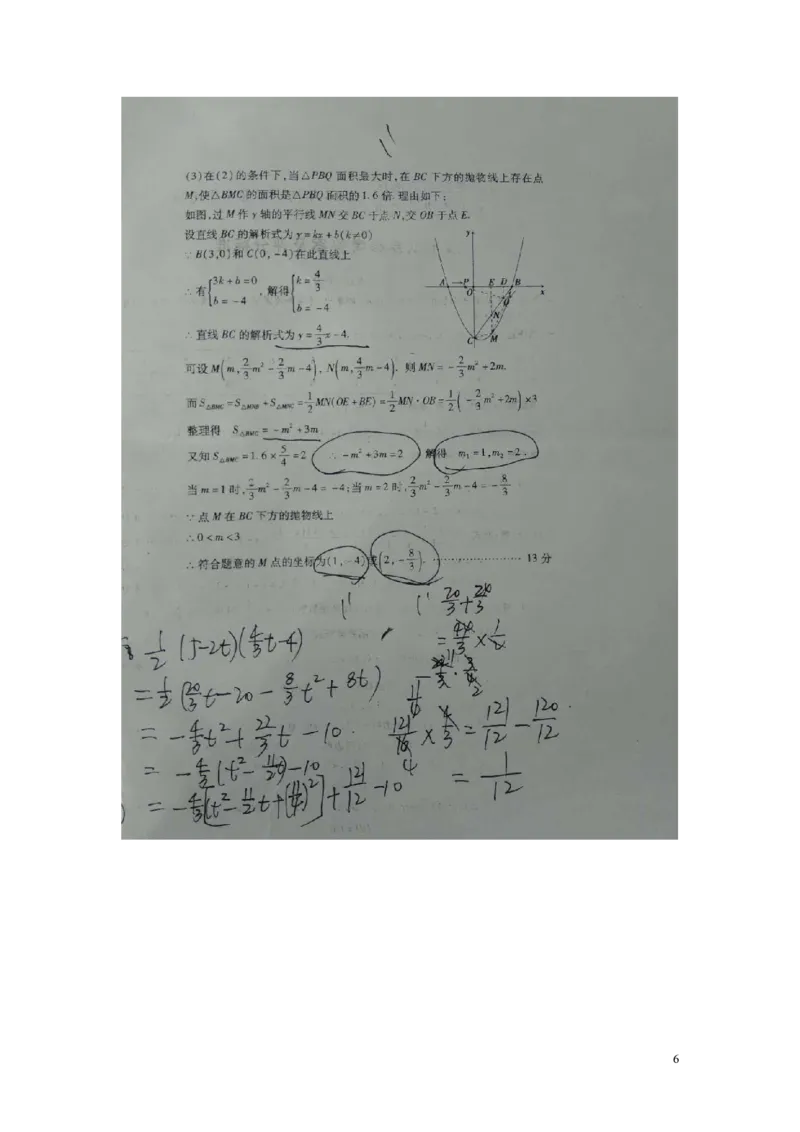 (3)在(2)的条件下,当△PBQ 面积最大时,在 BC 下方的抛物线上存在点
M,使△BMC 的面积是△PBQ 面积的 1.6 倍. 理由如下:
如图,过 M 作 y 轴的平行线 MN 交 BC 于点 N,交 OB 于点 E.
设直线 BC 的解析式为 y=kx+b(k≠0)
∵ B(3,0)和 C(0,-4)在此直线上
∴有{3k+b=0, b=-4 ,解得{k=4/3, b=-4
∴直线 BC 的解析式为 y=4/3=-4.
可设 M(m,2/3m²-2/3m-4), N(m,4/3m-4). 则 MN=-2/3m²+2m.
而 S△BMC=S△MNB+S△MNC=1/2MN(OE+BE)=1/2MN·OB=1/2(-2/3m²+2m)×3
整理得 S△BMC=-m²+3m
又知 S△BMC=1.6×5/4=2 ∴-m²+3m=2 解得 m₁=1,m₂=2.
当 m=1 时,2/3m²-2/3m-4=-4;当 m=2 时,2/3m²-2/3m-4=-8/3
∵点 M 在 BC 下方的抛物线上
∴0<m<3
∴符合题意的 M 点的坐标为(1,-4)或(2,-8/3). ………………… 13 分
y
A P O E D B x
Q
N
C M
1' 1'
1/2(5-2t)(4/3t-4)
=1/2(20/3t-20-8/3t²+8t)
=-4/3t²+22/3t-10.
=-4/3(t²-11/2t)-10
=-4/3[t²-11/2t+(11/4)²]+121/12-10
121/16×4/3=121/12-120/12.
=1/12
6